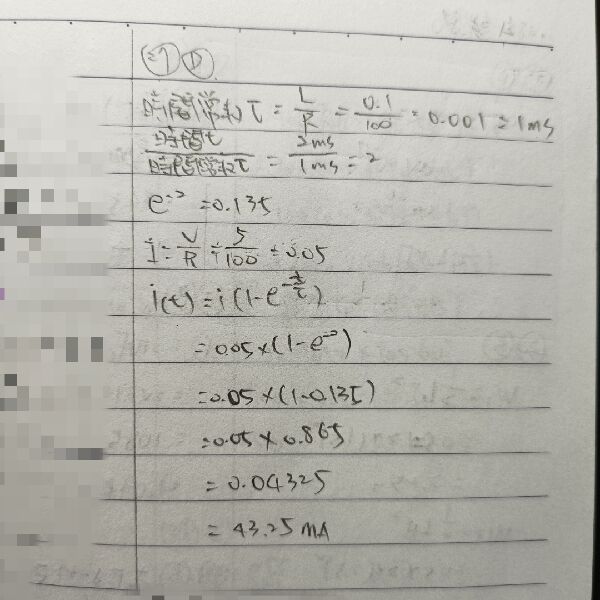 27 D
時間常数 τ = L/R = 0.1/100 = 0.001 = 1ms
時間t/時間常数τ = 2ms/1ms = 2
e⁻² = 0.135
i = V/R = 5/100 = 0.05
i(t) = i(1-e^-t/τ)
= 0.05×(1-e⁻²)
= 0.05×(1-0.135)
= 0.05×0.865
= 0.04325
= 43.25 mA